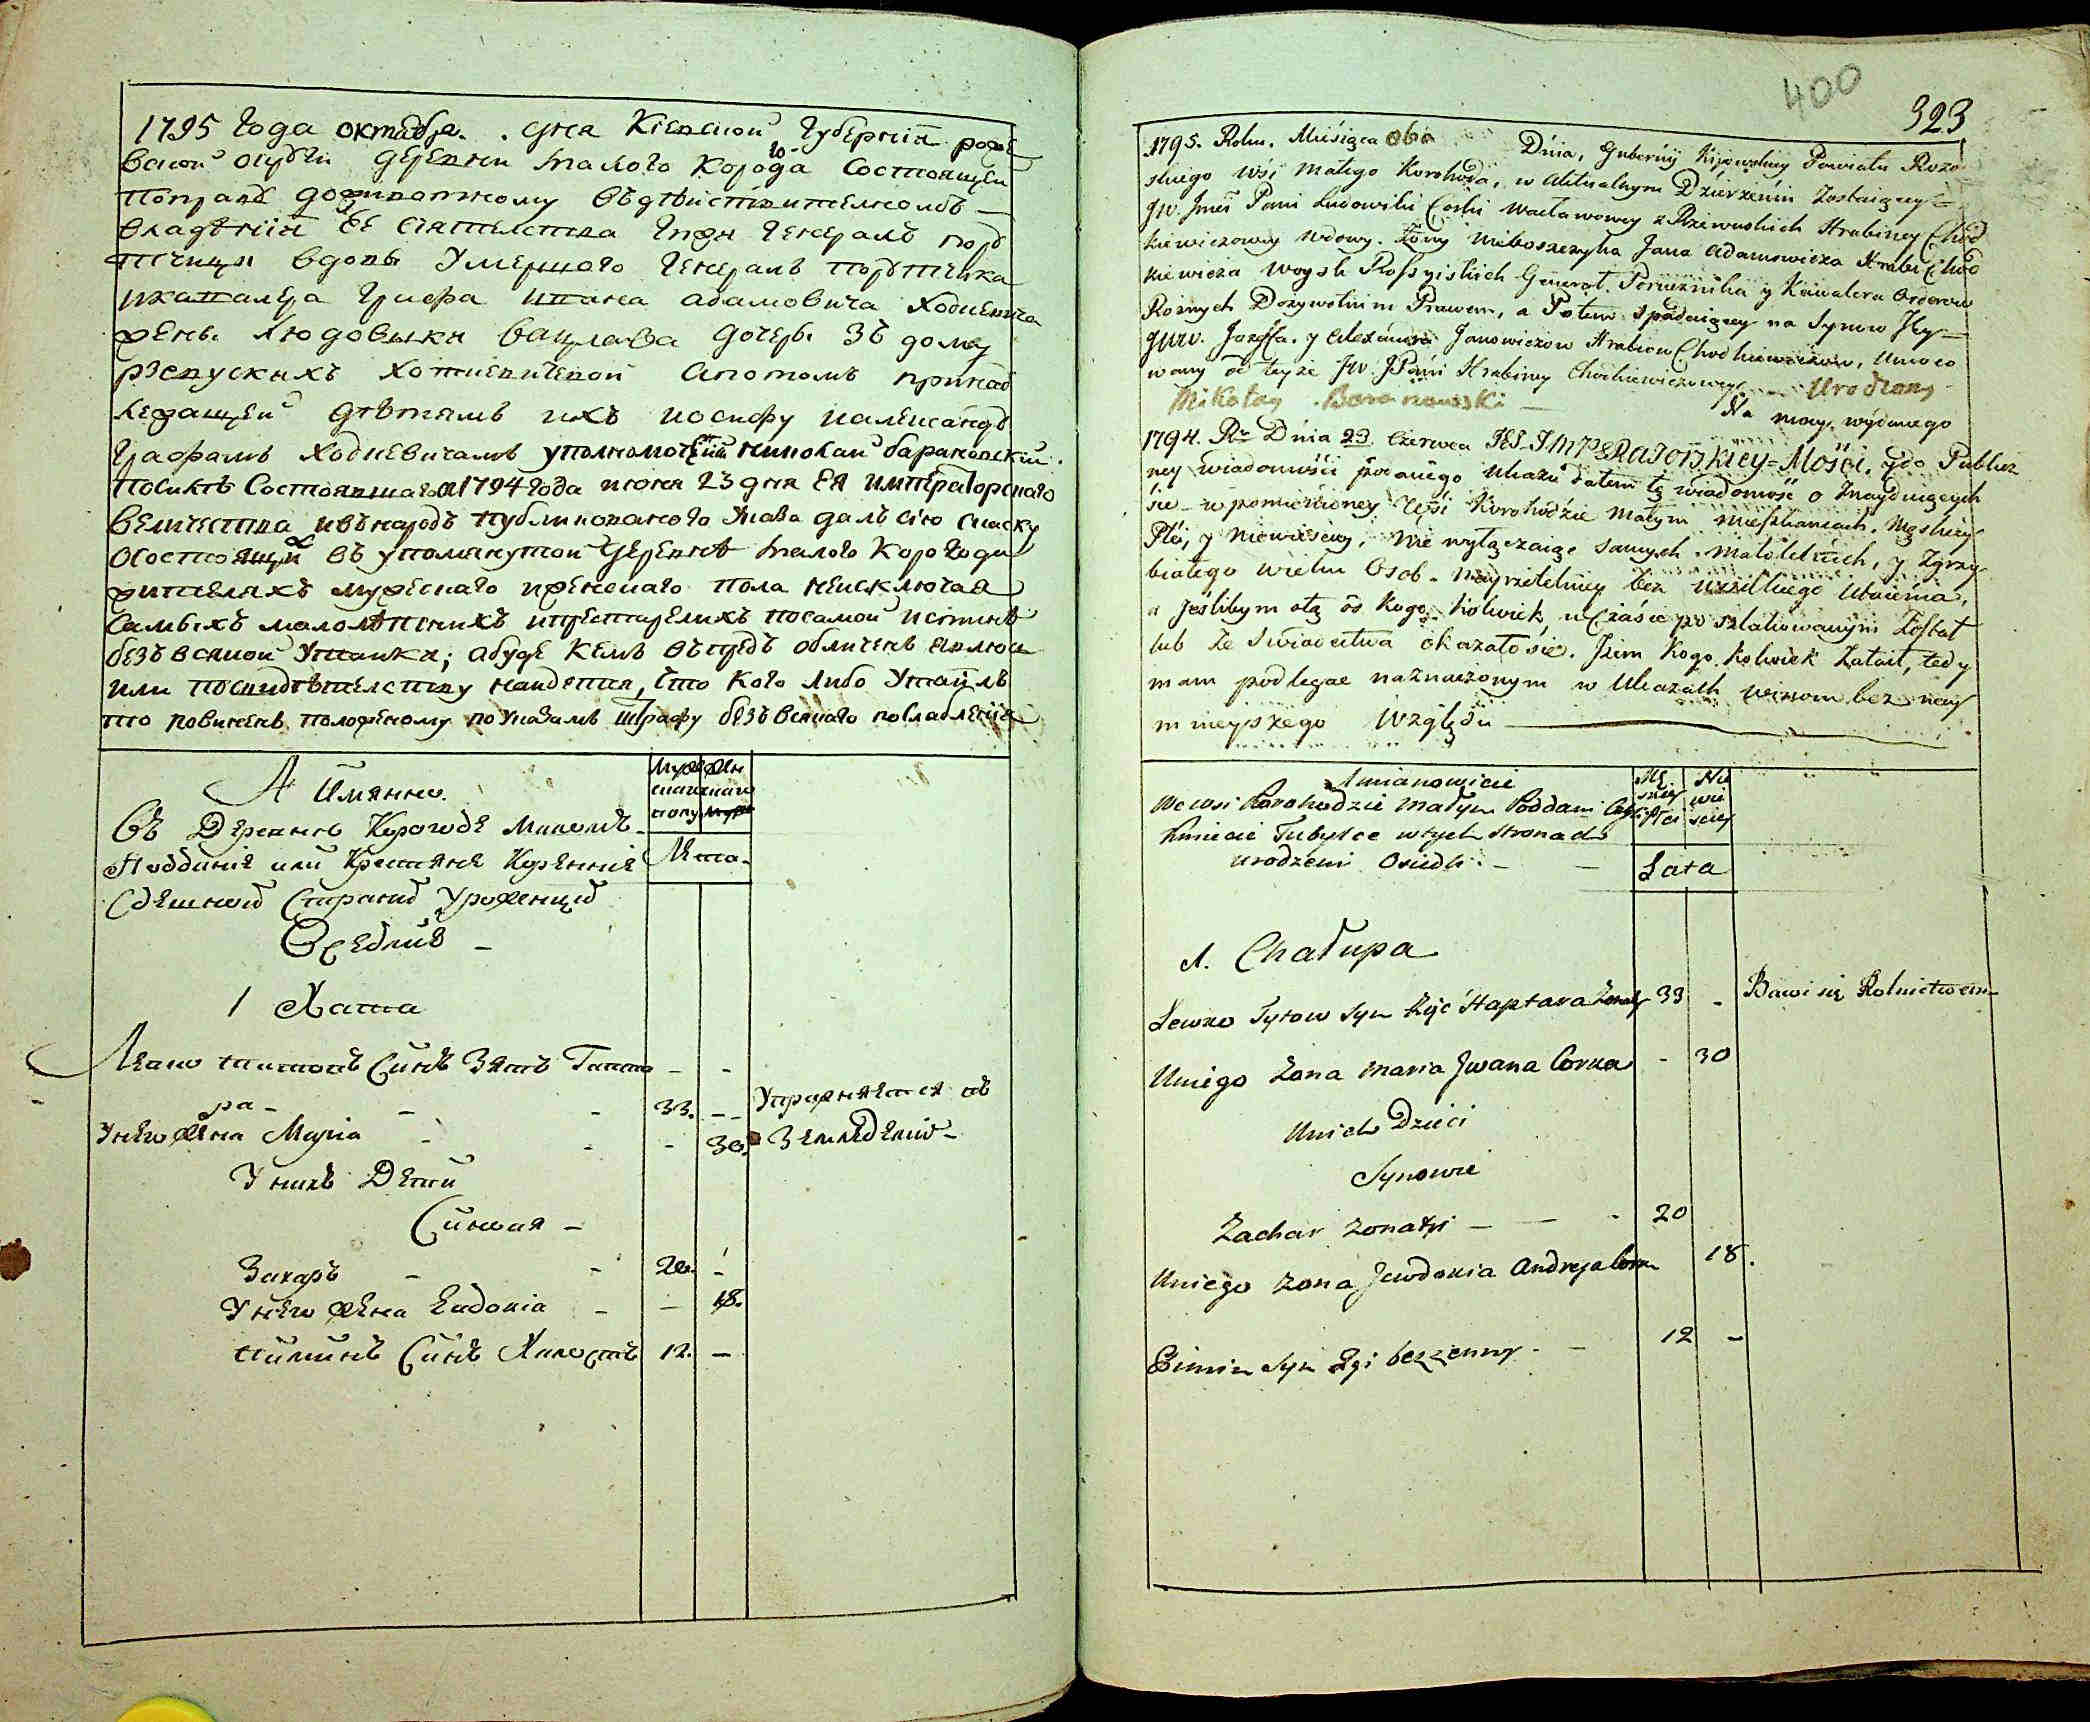 1795 года октября. . дня Кіевской Губерніи рофе
вской округи деревни малого Корогода состоящей
поправу доживотному въдѣйствителномъ
владѣніи Ее Сіятелства Гпжи Генералъ пору
тчици вдовы Умершого Генералъ порутчика
икавалера Графа ивана адамовича Ходкевича
жены Людовыки вацлава дочеры зъ дому
рзевускихъ Ходкевичевой апотомъ принад
лежащей дѣтямъ ихъ иосифу иалександру
Графамъ Ходкевичамъ уполномоченый николай барановскій.
посилѣ Состоявшагося 1794 года июня 23 дня Ея императорскаго
величества ивънародъ публикованого Указа далъ сію сказку
осостоящихъ въ упомянутой Деревнѣ малого Корогода
жителяхъ мужескаго иженскаго пола неисключая
самыхъ малолѣтнихъ ипрестарелихъ посамой истинѣ
безъ всякой Утайки; абуде кемъ въпредъ обличенъ явлюсь
или посвидѣтелству найдется, что кого либо Утаилъ
то повиненъ положеному по Указамъ штрафу безъ всякаго послабленія
А Имянно.
Муже жен
скаго скаго
полу
Въ Деревнѣ Корогоде Маломъ
Подданіе или Крестяне Коренніе
Лета.
Сдешной Страни Уроженци
Оседлие
1 Хата
Левко титовъ Синъ Зять Гапта
ра 33.
Упражняется въ
Унего жена Марія 30.
Земледелии
Унихъ Дети
Синовя
Захаръ 20.
Унего жена Евдокія 18.
пиминъ Синъ Холостъ 12.
400
323
1795. Roku. Miesiąca Dnia, Guberniy Kijowskiey Powiatu Rozo
skiego wsi małego Korohoda, w Aktualnym Dzierzeniu Zostaiącey
JW. Jmci Pani Ludowiki Corki Wacławowey z Rzewuskich Hrabiney Chod
kiewiczowey wdowy. Żony nieboszczyka Jana Adamowicza Hrabi Chod
kiewicza Woysk Rossyiskich Generał Poruznika y Kawalera Orderow
Roznych Dozywotnim Prawem, a Potem Spadaiącey na Synow Jey
JWW. Jozeffa. y Alexandra Janowiczow Hrabiow Chodkiewiczow, Umoco
wany od teyże JW. JPani Hrabiny Chodkiewiczowey Urodzony
Mikołay Baranowski
Na mocy wydanego
1794. Ru Dnia 23 Czerwca JEJ IMPERATORSKIEY Mości. y do Publicz
ney wiadomości podanego Ukazu dałem tę wiadomość o Znayduiących
się w pomienioney Wsi Korohodzie małym mieszkancach. Męskiey
Płci, y niewiesciey, nie wyłączaiąc samych małoletnich, y Zgrzy
białego wieku Osob. nayrzetelniey bez wszelkiego Utaienia,
a jeślibym otą od Kogo kolwiek w Czasie po szlakowanym Został
lub ze Swiadectwa okazało się. Jżem Kogo kolwiek Zataił, tedy
mam podlegac naznaczonym w Ukazach winom bez nay
mnieyszego Względu
Amianowicie
Mę Nie
skiey wie
Płci sciey
We wsi Korohodzie małym Poddani Czyli
Kmiecie Tubylce w tych stronach
urodzeni Osiedli.
Lata
1. Chałupa
Lewko Tytow Syn Zięć Haptara Zonaty 33
Bawi się Rolnictwem
Uniego Zona Maria Jwana Corka 30
Unich Dzieci
Synowie
Zachar Zonaty 20
Uniego Zona Jewdokia Andreja Corka 18.
Pimin Syn bezzenny 12